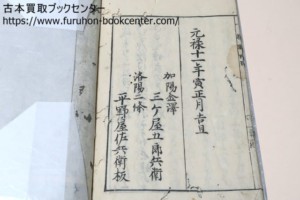 古本買取ブックセンター
https://www.furuhon-bookcenter.com/
元禄十一年寅正月吉旦
加陽金澤
三ケ屋五郎兵衛
洛陽二條
平野屋佐兵衛板